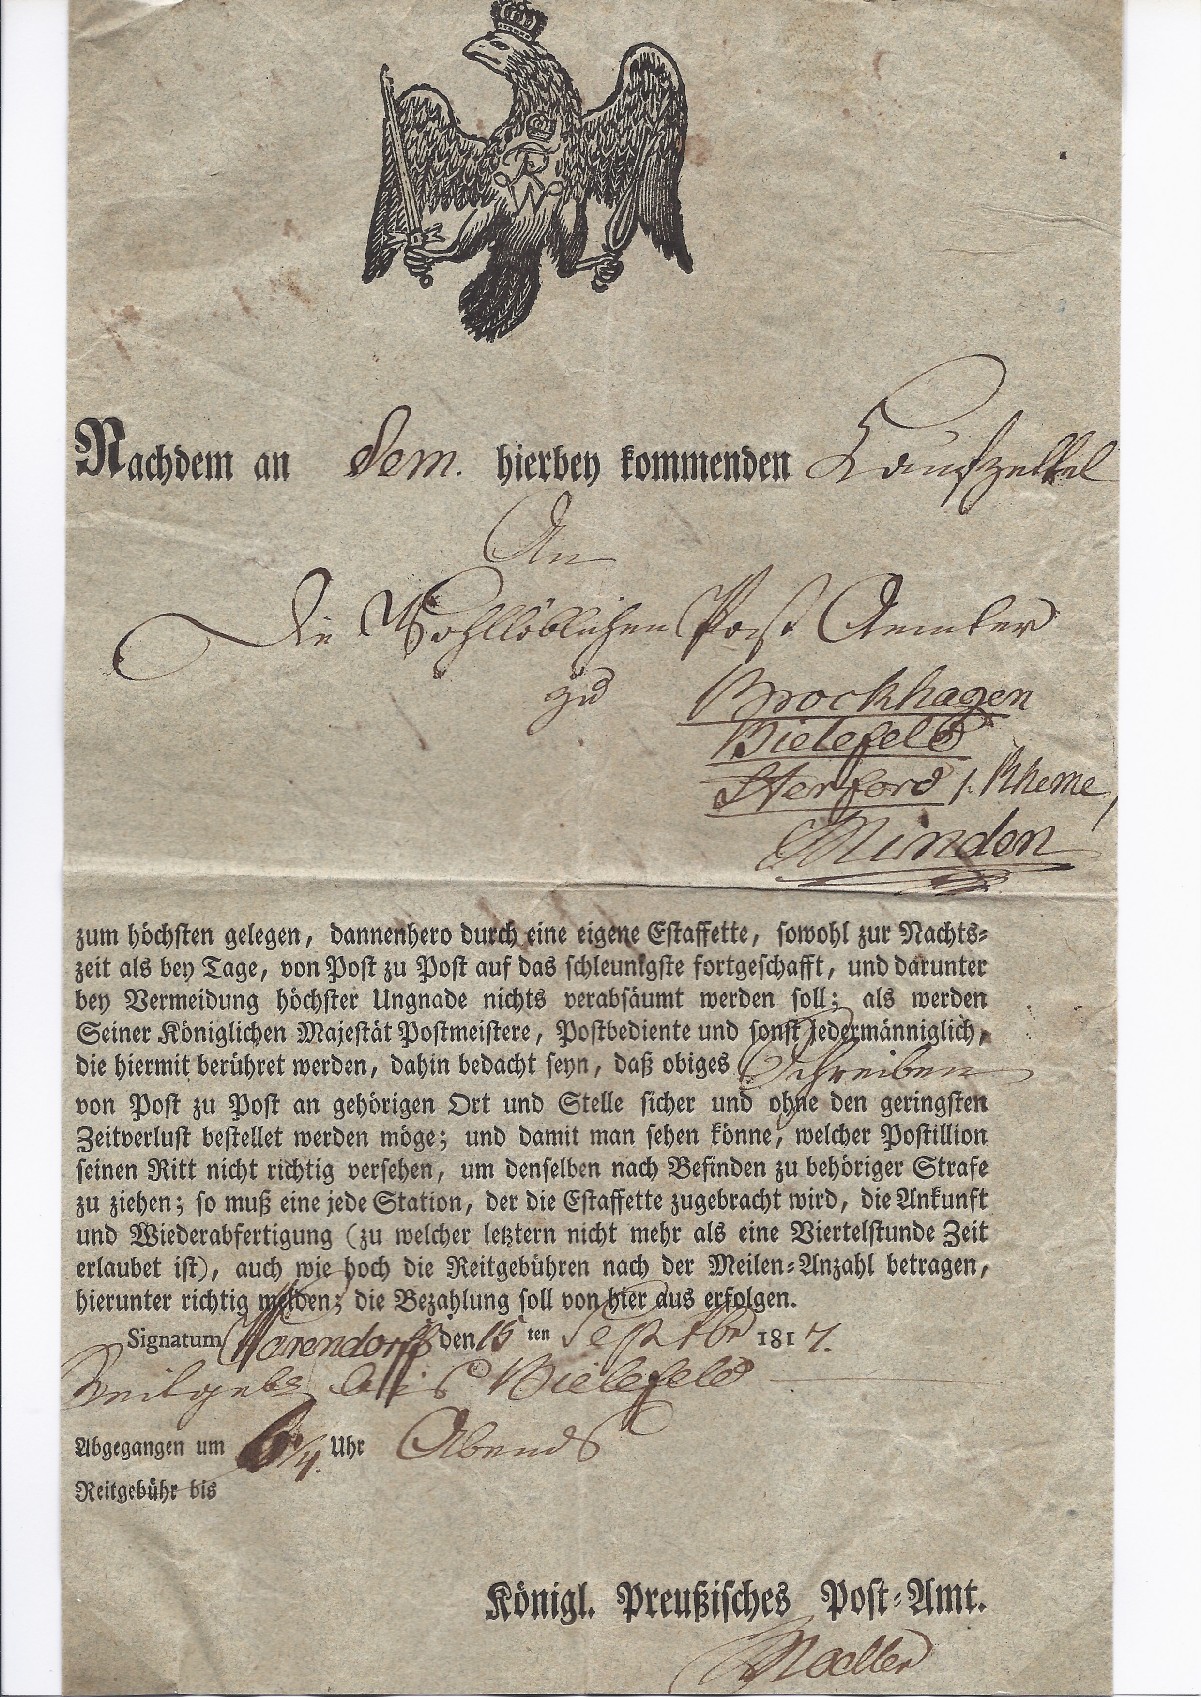 FRW
Nachdem an dem. hierbey kommenden Laufzettel
An
Die Wohllöblichen Post Aemter
zu Brockhagen
Bielefeld
Herford /. Rheme,
Minden
zum höchsten gelegen, dannenhero durch eine eigene Estaffette, sowohl zur Nachts-
zeit als bey Tage, von Post zu Post auf das schleunigste fortgeschafft, und darunter
bey Vermeidung höchster Ungnade nichts verabsäumt werden soll; als werden
Seiner Königlichen Majestät Postmeistere, Postbediente und sonst jedermänniglich,
die hiermit berühret werden, dahin bedacht seyn, daß obiges Schreiben
von Post zu Post an gehörigen Ort und Stelle sicher und ohne den geringsten
Zeitverlust bestellet werden möge; und damit man sehen könne, welcher Postillion
seinen Ritt nicht richtig versehen, um denselben nach Befinden zu behöriger Strafe
zu ziehen; so muß eine jede Station, der die Estaffette zugebracht wird, die Ankunft
und Wiederabfertigung (zu welcher letztern nicht mehr als eine Viertelstunde Zeit
erlaubet ist), auch wie hoch die Reitgebühren nach der Meilen-Anzahl betragen,
hierunter richtig melden; die Bezahlung soll von hier aus erfolgen.
Signatum Warendorff den 15 ten Septbr 1817.
bis Bielefeld
Abgegangen um 6 1/4. Uhr Abends
Reitgebühr bis
Königl. Preußisches Post-Amt.
Moeller